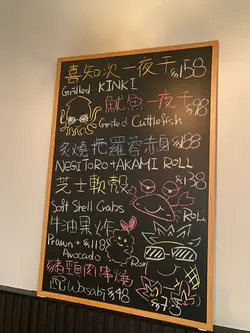 喜知次一夜干 $158
Grilled KINKI
魷魚一夜干 $98
Grilled Cuttlefish
炙燒拖羅蓉赤身 $188
NEGITORO+AKAMI ROLL
芝士軟殼 $138
Soft Shell Crabs ROLL
牛油果炸
Prawn + $118
Avocado Roll
豬頸肉串燒
配Wasabi $48
$78